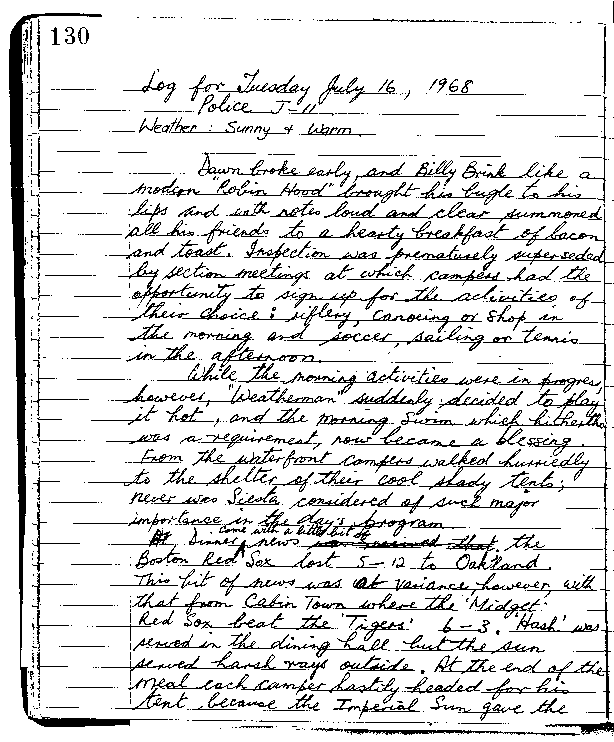 130
Log for Tuesday July 16, 1968
Police J-11
Weather: Sunny & Warm.
Dawn broke early, and Billy Brink like a
modern "Robin Hood" brought his bugle to his
lips and with notes loud and clear summoned
all his friends to a hearty breakfast of bacon
and toast. Inspection was prematurely superseded
by section meetings at which campers had the
opportunity to sign up for the activities of
their choice: riflery, canoeing or shop in
the morning and soccer, sailing or tennis
in the afternoon.
While the morning activities were in progress,
however, "Weatherman" suddenly decided to play
it hot, and the morning Swim which hitherto
was a requirement, now became a blessing.
From the waterfront campers walked hurriedly
to the shelter of their cool shady tents;
never was Siesta considered of such major
importance in the day's program.
come with a bitter bit of
At Dinner, news was received that the
Boston Red Sox lost 5-12 to Oakland.
This bit of news was at variance, however, with
that from Cabin Town where the 'Midget'
Red Sox beat the 'Tigers' 6-3. 'Hash' was
served in the dining hall but the sun
served harsh rays outside. At the end of the
meal each camper hastily headed for his
tent because the Imperial Sun gave the